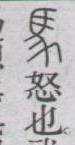 馬怒也。